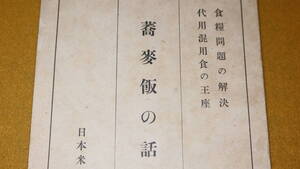 食糧問題の解決
代用混用食の王座
蕎麥飯の話
日本米